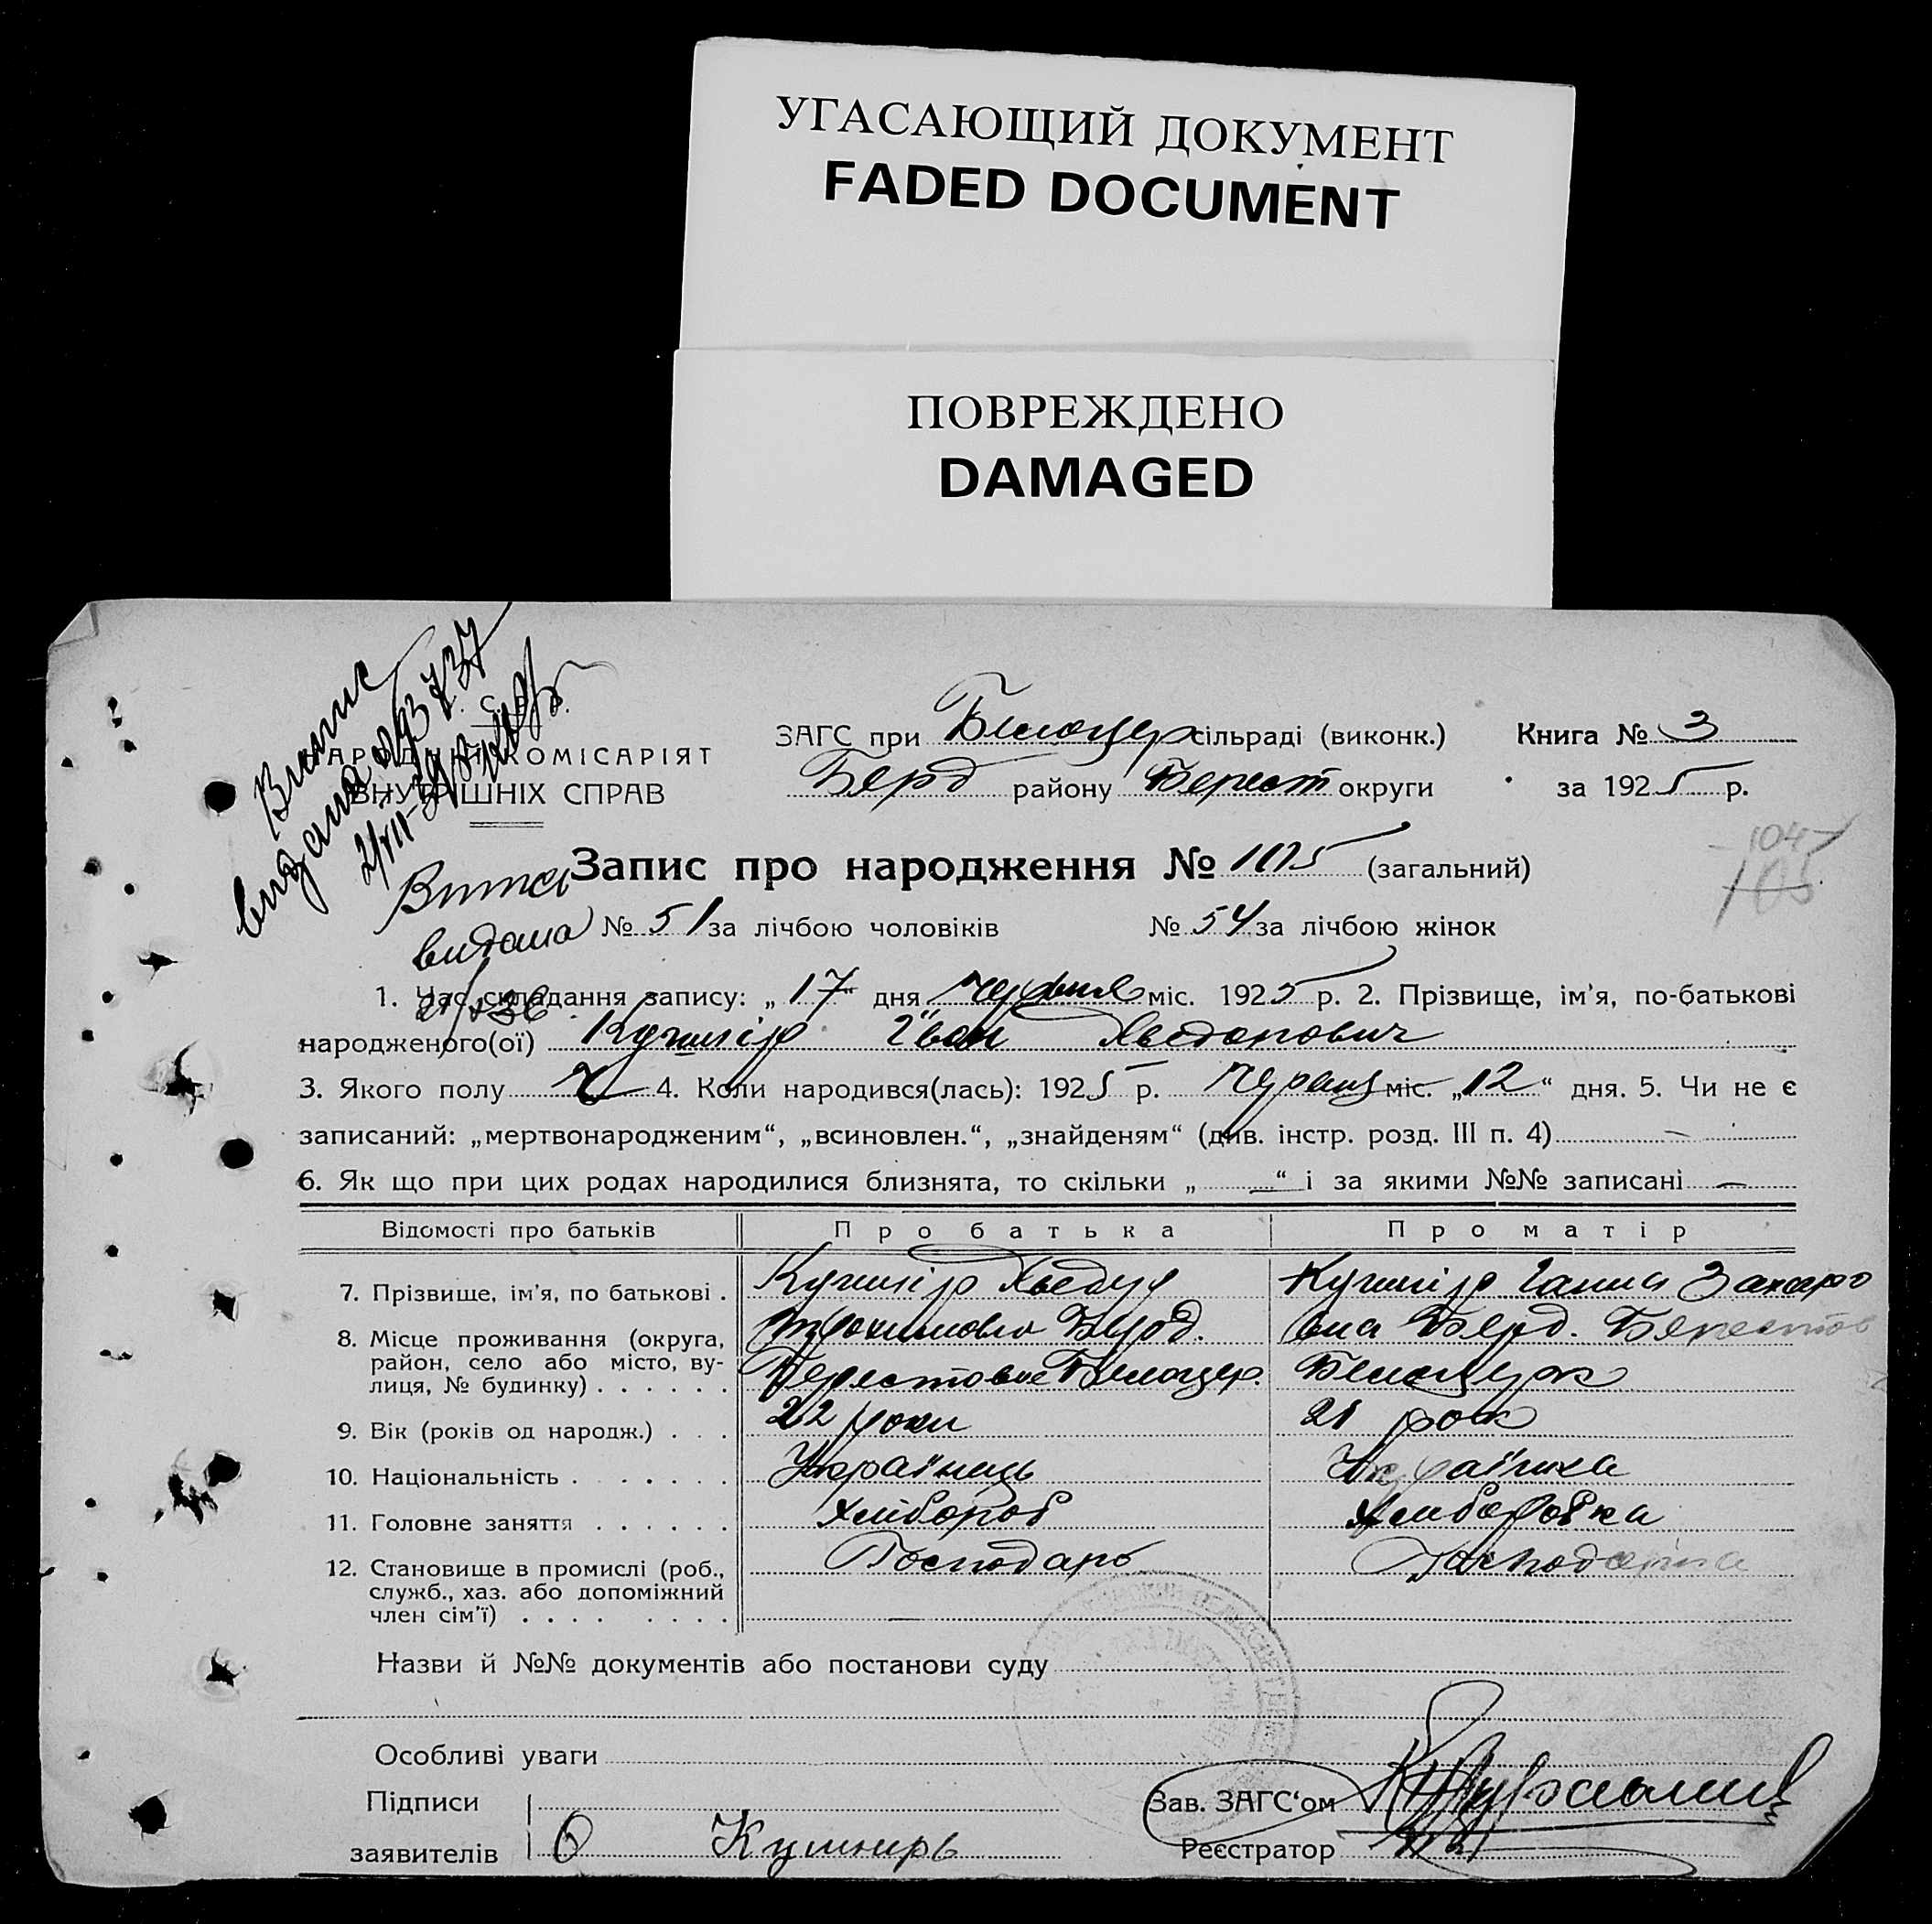 УГАСАЮЩИЙ ДОКУМЕНТ
FADED DOCUMENT
ПОВРЕЖДЕНО
DAMAGED
НАРОДНИЙ КОМІСАРІЯТ
ВНУТРІШНІХ СПРАВ
Випис
видана
Витяг
видано
ЗАГС при Белоцер сільраді (виконк.) Книга № 3
Берд району Берест округи за 1925 р.
Запис про народження № 105 (загальний)
104
105
№ 51 за лічбою чоловіків № 54 за лічбою жінок
1. Час складання запису: „17“ дня червня міс. 1925 р. 2. Прізвище, ім'я, по-батькові
народженого(ої) Кушнір Іван Хведорович
3. Якого полу ч 4. Коли народився(лась): 1925 р. червня міс. „12“ дня. 5. Чи не є
записаний: „мертвонародженим“, „всиновлен.“, „знайденям“ (див. інстр. розд. III п. 4) —
6. Як що при цих родах народилися близнята, то скільки „—“ і за якими №№ записані —
Відомості про батьків Про батька Про матір
7. Прізвище, ім'я, по батькові . Кушнір Хведур Кушнір Ганна Захаро
8. Місце проживання (округа, Трохимович Берд. вна Берд. Берестов
район, село або місто, ву- Берестовск Белоцер. Белоцерк
лиця, № будинку) . . . . . .
9. Вік (років од народж.) . . . 22 роки 21 рок
10. Національність . . . . . . Українець Українка
11. Головне заняття . . . . . . Хлібороб Хлиборобка
12. Становище в промислі (роб., Господарь Господарка
служб., хаз. або допоміжний
член сім'ї) . . . . . . . .
Назви й №№ документів або постанови суду
Особливі уваги
Підписи
заявителів Кушниръ
Зав. ЗАГС'ом
Реєстратор